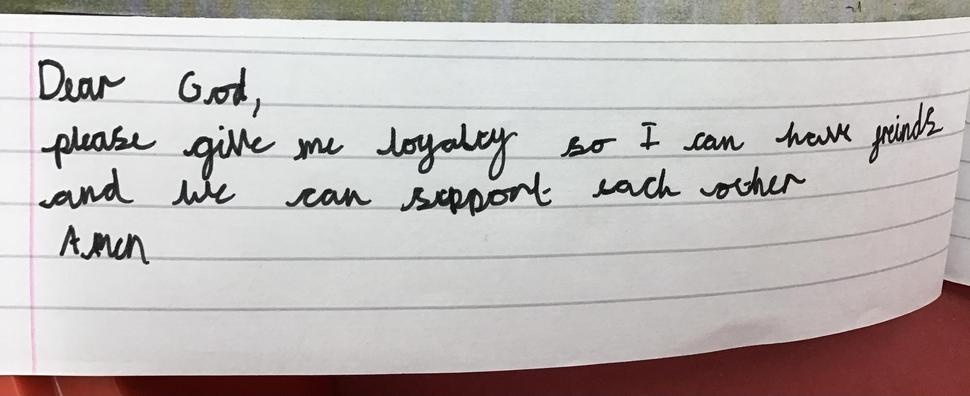 Dear God,
please give me loyalty so I can have freinds
and we can support each other
Amen